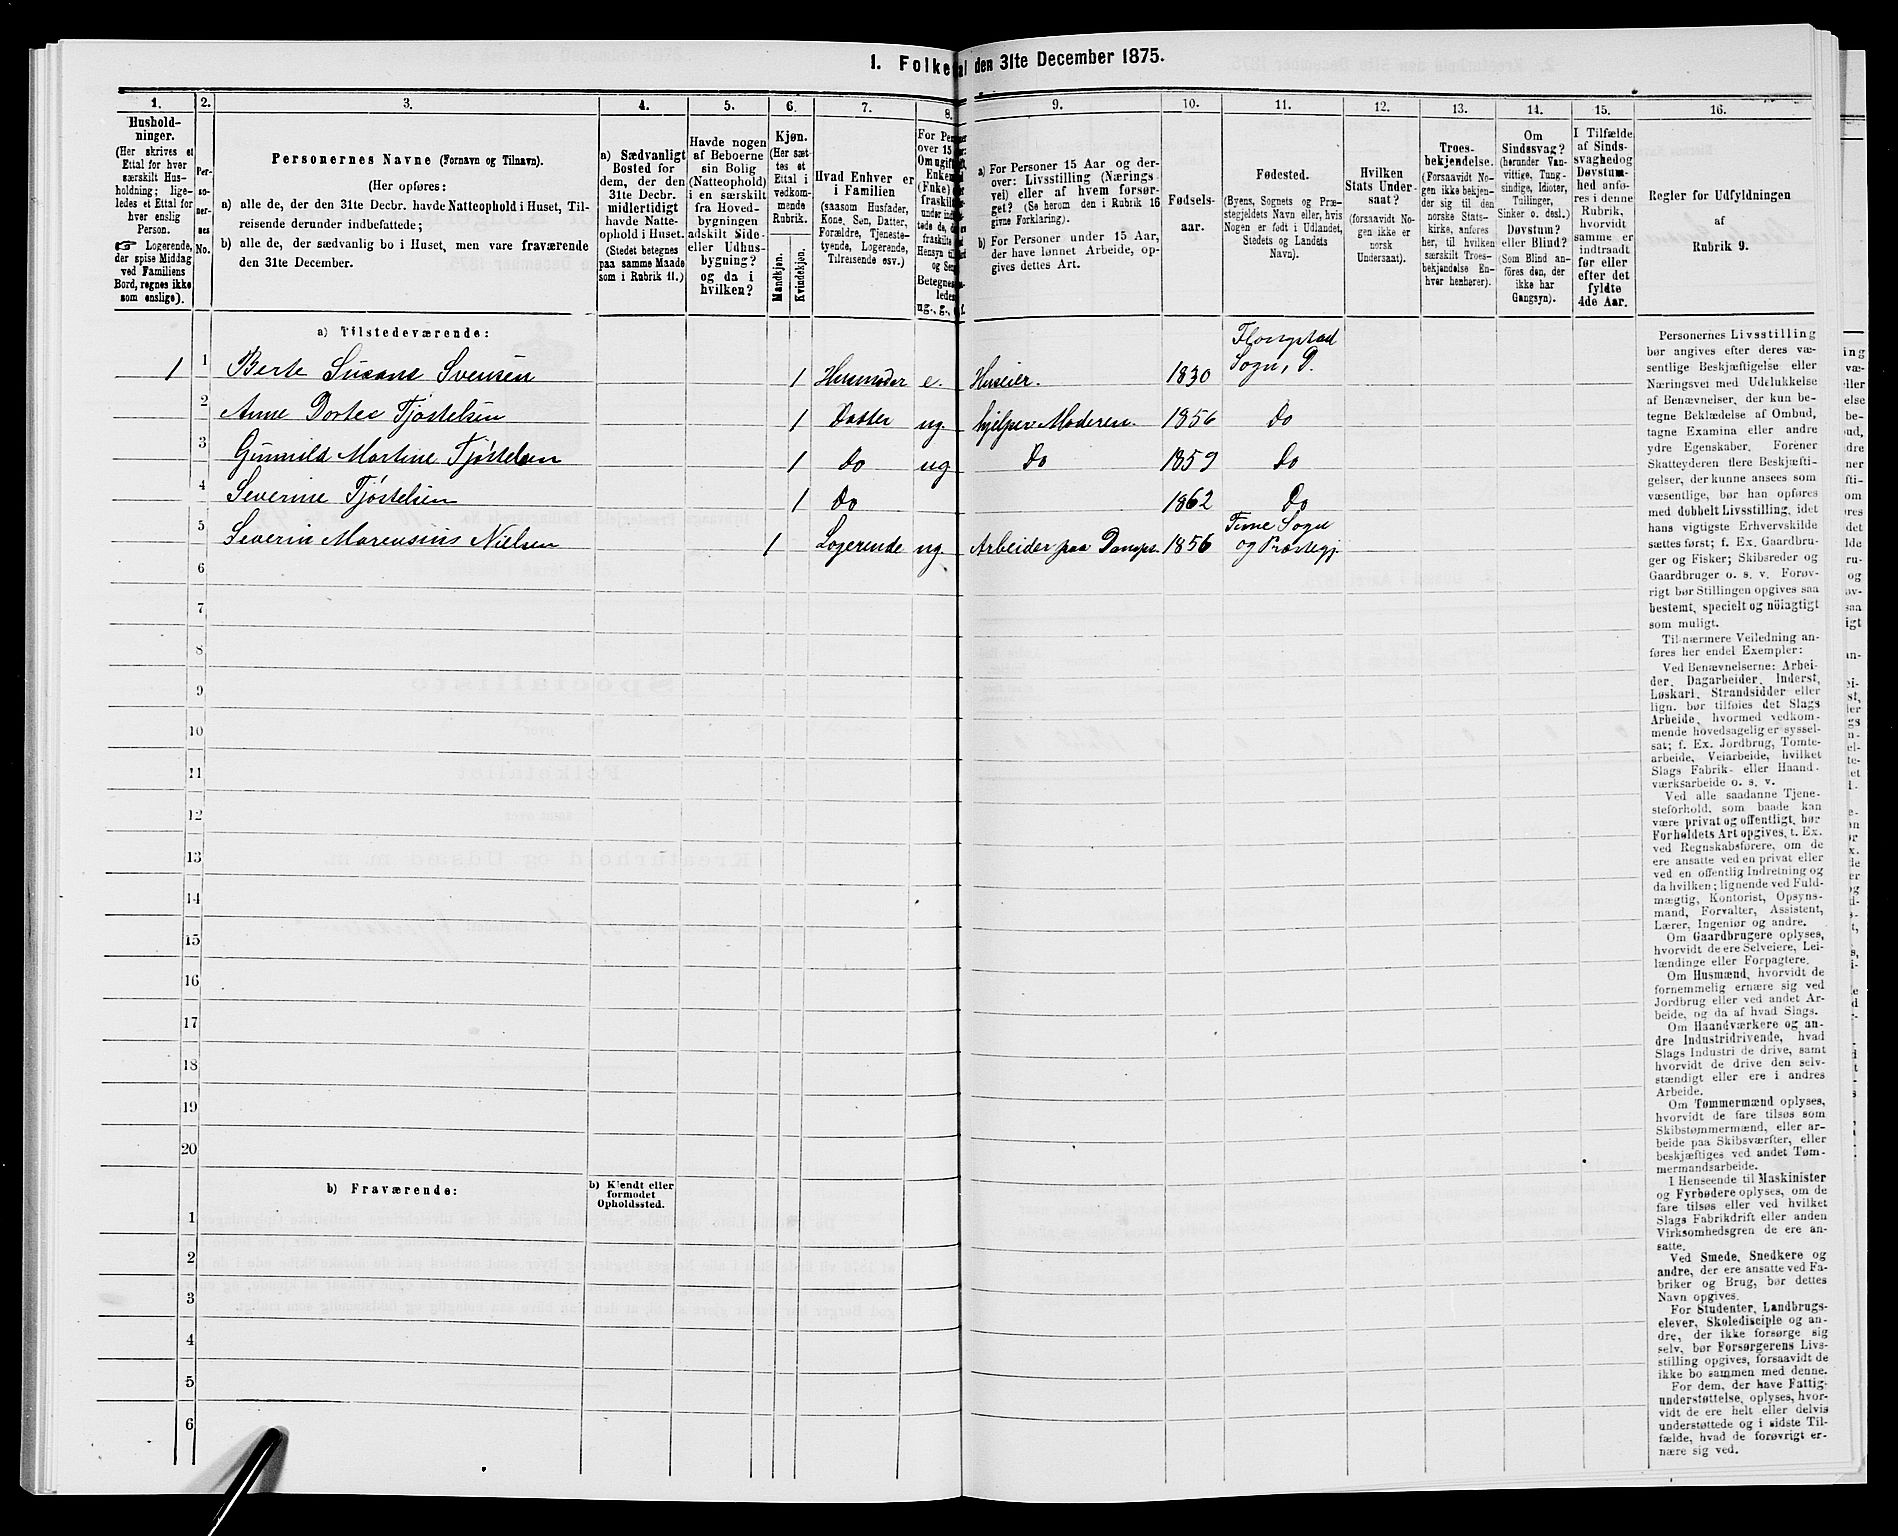 1. Folketal den 31te December 1875.
1.
Hushold-
ninger.
(Her skrives et
Ettal for hver
særskilt Hus-
holdning; lige-
ledes et Ettal for
hver enslig
Person.
☞ Logerende,
der spise Middag
ved Familiens
Bord, regnes ikke
som enslige).
2.
Per-
so-
ner-
nes
No.
3.
Personernes Navne (Fornavn og Tilnavn).
(Her opføres:
a) alle de, der den 31te Decbr. havde Natteophold i Huset, Til-
reisende derunder indbefattede;
b) alle de, der sædvanlig bo i Huset, men vare fraværende
den 31te December.
4.
a) Sædvanligt
Bosted for
dem, der den
31te Decbr.
midlertidigt
havde Natte-
ophold i Huset.
(Stedet betegnes
paa samme Maade
som i Rubrik 11.)
5.
Havde nogen
af Beboerne
sin Bolig
(Natteophold)
i en særskilt
fra Hoved-
bygningen
adskilt Side-
eller Udhus-
bygning?
og da i
hvilken?
6.
Kjøn.
(Her sæt-
tes et
Ettal i
vedkom-
mende
Rubrik.
Mandkjøn.
Kvindekjøn.
7.
Hvad Enhver er
i Familien
(saasom Husfader,
Kone, Søn, Datter,
Forældre, Tjeneste-
tyende, Logerende,
Tilreisende osv.)
8.
For
over 15
Om ugift
Enke
(Fnke)
fraskilt
ug., g.,
9.
a) For Personer 15 Aar og der-
over: Livsstilling (Nærings-
vei) eller af hvem forsør-
get? (Se herom den i Rubrik 16
givne Forklaring).
b) For Personer under 15 Aar,
der have lønnet Arbeide, op-
gives dettes Art.
10.
Fødsels-
aar.
11.
Fødested.
(Byens, Sognets og Præ-
stegjeldets Navn eller, hvis
Nogen er født i Udlandet,
Stedets og Landets
Navn).
12.
Hvilken
Stats Under-
saat?
(forsaavidt No-
gen ikke er
norsk
Undersaat).
13.
Troes-
bekjendelse.
(Forsaavidt No-
gen ikke bekjen-
der sig til den
norske Stats-
kirke, anføres
her, til hvilken
særskilt Troes-
bekjendelse En-
hver henhører).
14.
Om
Sindssvag?
(herunder Van-
vittige, Tung-
sindige, Idioter,
Tullinger,
Sinker o. desl.)
Døvstum?
eller Blind?
(Som Blind an-
føres den, der
ikke har
Gangsyn).
15.
I Tilfælde
af Sinds-
svaghed og
Døvstum-
hed anfø-
res i denne
Rubrik,
hvorvidt
samme er
indtraadt
før eller
efter det
fyldte
4de Aar.
16.
Regler for Udfyldningen
af
Rubrik 9.
a) Tilstedeværende:
1 1 Berte Susane Svensen 1 Husmoder e. Huseier. 1830 Sogn, D.
2 Anne Dortea Tjøstelsen 1 Datter ug. hjelper Moderen. 1856 Do
3 Gunnild Martine Tjøstelsen 1 Do ug Do 1859 Do
4 Severine Tjøstelsen 1 Do 1862 Do
5 Severin Marensius Nielsen 1 Logerende ug. Arbeider paa 1856 Time Sogn
og Præstegj.
6
7
8
9
10
11
12
13
14
15
16
17
18
19
20
b) Fraværende:
b) Kjendt eller
formodet
Opholdssted.
1
2
3
4
5
6
Personernes Livsstilling
bør angives efter deres væ-
sentlige Beskjæftigelse eller
Næringsvei med Udelukkelse
af Benævnelser, der kun be-
tegne Beklædelse af Ombud,
tagne Examina eller andre
ydre Egenskaber. Forener
Skatteyderen flere Beskjæfti-
gelser, der kunne ansees som
væsentlige, bør han opføres
med dobbelt Livsstilling, idet
hans vigtigste Erhvervskilde
sættes først; f. Ex. Gaardbru-
ger og Fisker; Skibsreder og
Gaardbruger o. s. v. Forøv-
rigt bør Stillingen opgives saa
bestemt, specielt og nöiagtigt
som muligt.
Til nærmere Veiledning an-
føres her endel Exempler:
Ved Benævnelserne: Arbei-
der, Dagarbeider, Inderst,
Løskarl, Strandsidder eller
lign. bør tilføies det Slags
Arbeide, hvormed vedkom-
mende hovedsagelig er syssel-
sat; f. Ex. Jordbrug, Tomte-
arbeide, Veiarbeide, hvilket
Slags Fabrik- eller Haand-
værksarbeide o. s. v.
Ved alle saadanne Tjene-
steforhold, som baade kan
være privat og offentligt, bør
Forholdets Art opgives, t. Ex.
ved Regnskabsførere, om de
ere ansatte ved en privat eller
ved en offentlig Indretning og
da hvilken; lignende ved Fuld-
mægtig, Kontorist, Opsyns-
mand, Forvalter, Assistent,
Lærer, Ingeniør og andre.
Om Gaardbrugere oplyses,
hvorvidt de ere Selveiere, Lei-
lændinge eller Forpagtere.
Om Husmænd, hvorvidt de
fornemmelig ernære sig ved
Jordbrug eller ved andet Ar-
beide, og da af hvad Slags.
Om Haandværkere og an-
dre Industridrivende, hvad
Slags Industri de drive, samt
hvorvidt de drive den selv-
stændigt eller ere i andres
Arbeide.
Om Tømmermænd oplyses,
hvorvidt de fare tilsøs som
Skibstømmermænd, eller ar-
beide paa Skibsværfter, eller
beskjæftiges ved andet Tøm-
mermandsarbeide.
I Henseende til Maskinister
og Fyrbødere oplyses, om de
fare tilsøs eller ved hvilket
Slags Fabrikdrift eller anden
Virksomhedsgren de ere an-
satte.
Ved Smede, Snedkere og
andre, der ere ansatte ved Fa-
briker og Brug, bør dettes
Navn opgives.
For Studenter, Landbrugs-
elever, Skoledisciple og an-
dre, der ikke forsørge sig
selv, bør Forsørgerens Livs-
stilling opgives, forsaavidt de
ikke bo sammen med denne.
For dem, der have Fattig-
understøttelse, oplyses, hvor-
vidt de ere helt eller delvis
understøttede og i sidste Til-
fælde, hvad de forøvrigt er-
nære sig ved.